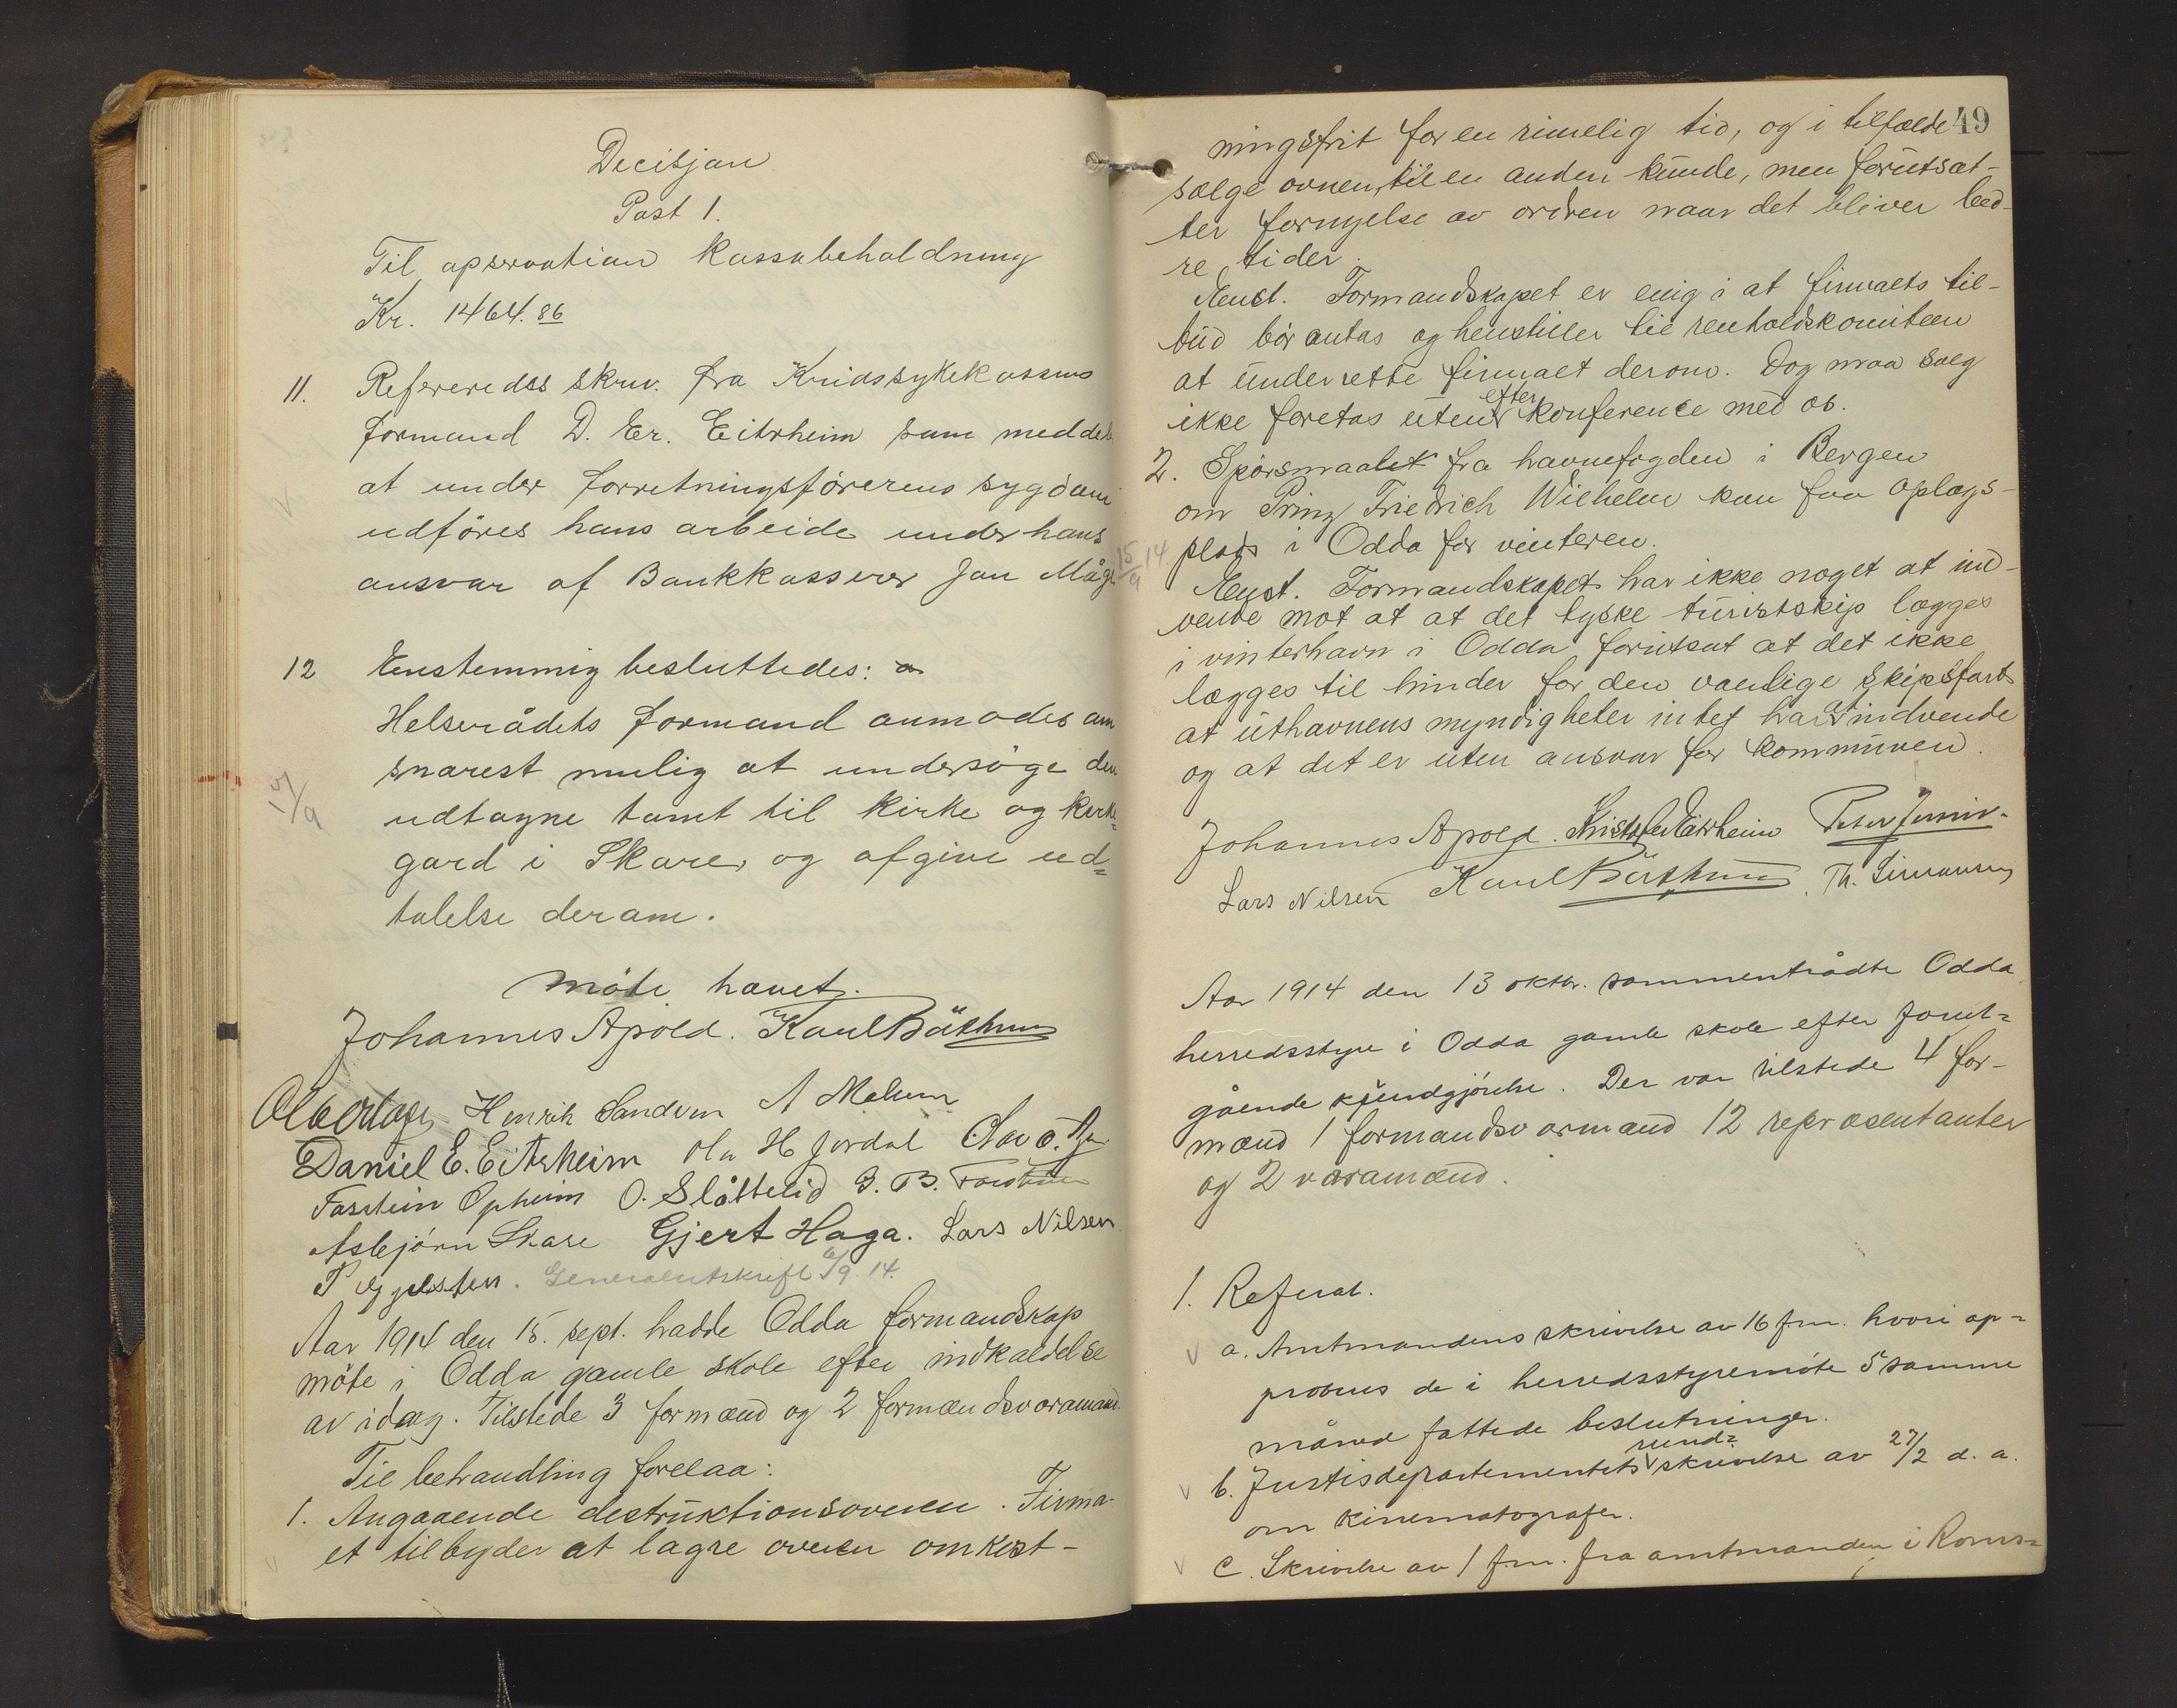 Decisjon
Post 1.
Til opservation Kassabeholdning
Kr. 1464.86
11. Refereredes skriv. fra Kridssykekassens
formand D. Er. Eitrheim som meddeler
at under forretningsförerens sygdom
udföres hans arbeide under hans
ansvar af Bankkasserer Jon Måge
12 Enstemmig besluttedes:
Helserådets formand anmodes om
snarest mulig at undersöge den
udtagne tomt til kirke og kirke=
gard i Skare, og afgive ud=
talelse derom.
Möte hævet.
Johannes Apold. Karl Böthun
Henrik Sandven A Melum
Daniel E. Eitrheim Ola H Jordal
Opheim O. Slåttelid G. B.
Asbjörn Skare Gjert Haga. Lars Nilsen
Generalutskrift 6/9 14.
Aar 1914 den 15. sept. hadde Odda formandskap
möte i Odda gamle skole efter indkaldelse
av idag. Tilstede 3 formænd og 2 formændsvaramænd.
Til behandling forelaa:
1. Angaaende destruktionsovnen. Firma-
et tilbyder at lagre ovnen omkost-
49
ningsfrit for en rimelig tid, og i tilfælde
sælge ovnen til en anden kunde, men forutsæt-
ter fornyelse av ordren naar det bliver bed-
re tider.
Enst. Formandskapet er enig i at firmaets til-
bud bör antas og henstiller til renholdskomiteen
at underrette firmaet derom. Dog maa salg
ikke foretas uten efter konference med os.
2. Spörsmaalet fra havnefogden i Bergen
om Prinz Friedrich Wilhelm kan faa oplags-
15/9 14. plads i Odda for vinteren.
Enst. Formandskapet har ikke noget at ind-
vende mot at at det tyske turistskip lægges
i vinterhavn i Odda forutsat at det ikke
lægges til hinder for den vanlige skipsfart
at uthavnens myndigheter intet har at indvende
og at det er uten ansvar for kommunen.
Johannes Apold. Kristofer Eitrheim Peter Jerniv.
Lars Nilsen Karl Böthun Th. Simonsen
Aar 1914 den 13 oktbr. sammentrådte Odda
herredsstyre i Odda gamle skole efter forut=
gående kundgjörelse. Der var tilstede 4 for-
mænd 1 formandsvarmand 12 repræsentanter
og 2 varamænd.
1. Referat.
a. Amtmandens skrivelse av 16 f.m. hvori ap=
proberes de i herredsstyremöte 5 samme
måned fattede beslutninger.
b. Justisdepartementets rund= skrivelse av 27/2 d. a.
om kinematografer.
c. Skrivelse av 1 f.m. fra amtmanden i Roms=